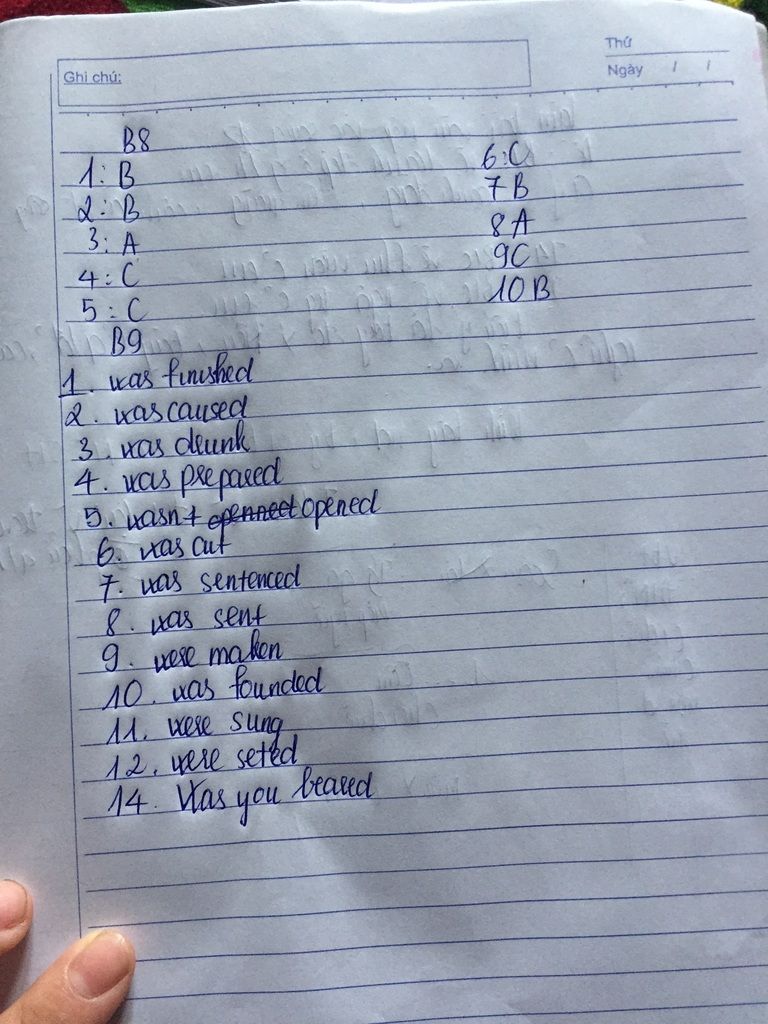 Ghi chú:
Thứ
Ngày / /
B8
1: B
2: B
3: A
4: C
5: C
6: C
7 B
8 A
9C
10 B
B9
1. was finished
2. was caused
3. was drunk
4. was prepared
5. wasn't openneet opened
6. was cut
7. was sentenced
8. was sent
9. were maken
10. was founded
11. were sung
12. were seted
14. Was you beared